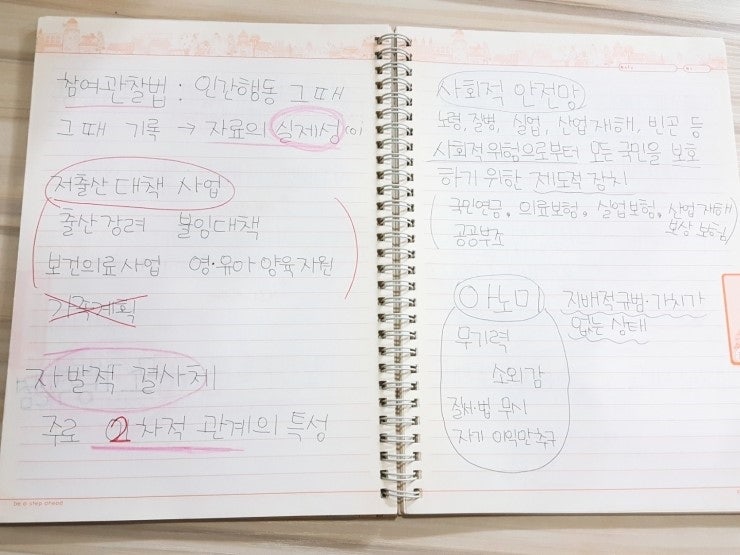 참여관찰법 : 인간행동 그때
그때 기록 → 자료의 실제성(o)
저출산대책 사업
출산장려 불임대책
보건의료사업 영·유아양육지원
가족계획
자발적 결사체
주로 2차적 관계의 특성
be a step ahead
사회적 안전망
노령, 질병, 실업, 산업재해, 빈곤 등
사회적위험으로부터 모든 국민을 보호
하기 위한 제도적 장치
(국민연금, 의료보험, 실업보험, 산업재해
공공부조 보상 보험)
아노미 지배적규범·가치가
없는 상태
무기력
소외감
질서·법 무시
자기 이익만추구